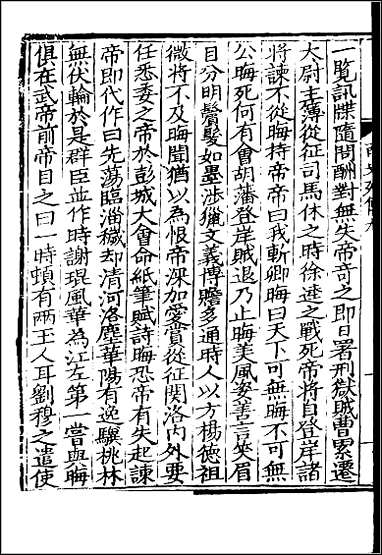 一覧訊牒隨問酬對無失帝竒之即日署刑獄賊曹累遷
大尉主薄從征司馬休之時徐逵之戰死帝將自登岸諸
將諫不從晦持帝帝曰我斬卿晦曰天下可無晦不可無
公晦死何有會胡藩登岸賊退乃止晦美風姿善言笑眉
目分明鬢髮如墨涉獵文義博贍多通時人以方楊德祖
微將不及晦聞猶以為恨帝深加愛賞從征関洛内外要
任悉委之帝於彭城大會命紙筆賦詩晦恐帝有失起諫
帝即代作曰先蕩臨淄穢却清河洛塵華陽有逸驥桃林
無伏輪於是群臣並作時謝琨風華為江左第一嘗與晦
俱在武帝前帝目之曰一時頓有兩玉人耳劉穆之遣使